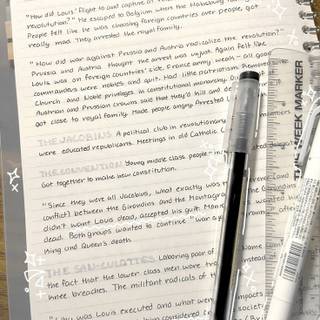 "How did Louis' flight to and capture at
revolution?" He escaped to Belgium when the
People felt like he was choosing foreign countries over people, got
really mad. They arrested the royal family.
"How did war against Prussia and Austria radicalize the revolution?"
Prussia and Austria thought the arrest was unjust. Again felt like
Louis was on foreign countries' side. France army weak - all good
commanders were nobles and quit. Had little patriotism.
Church and Noble privileges. in constitutional monarchy.
Austrian and Prussian crowns said that they'd kill and de
got close to royal family. Made people angry. Arrested L
THE JACOBINS A political club in revolutionary
were educated republicans. Meetings in old Catholic
THE CONVENTION Young middle class people
Got together to make new constitution.
"Since they were all Jacobins, what exactly was
conflict between the Girondins and the Montagn
didn't want Louis dead, accepted his guilt. Mon
dead. Both groups wanted to continue "war
King and Queen's death
THE SAN-CULOTTES Laboring poor of
the fact that the lower class men wore
knee breaches. The militant radicals of th
was Louis executed and what were
been considered
society
THIS WEEK MARKER